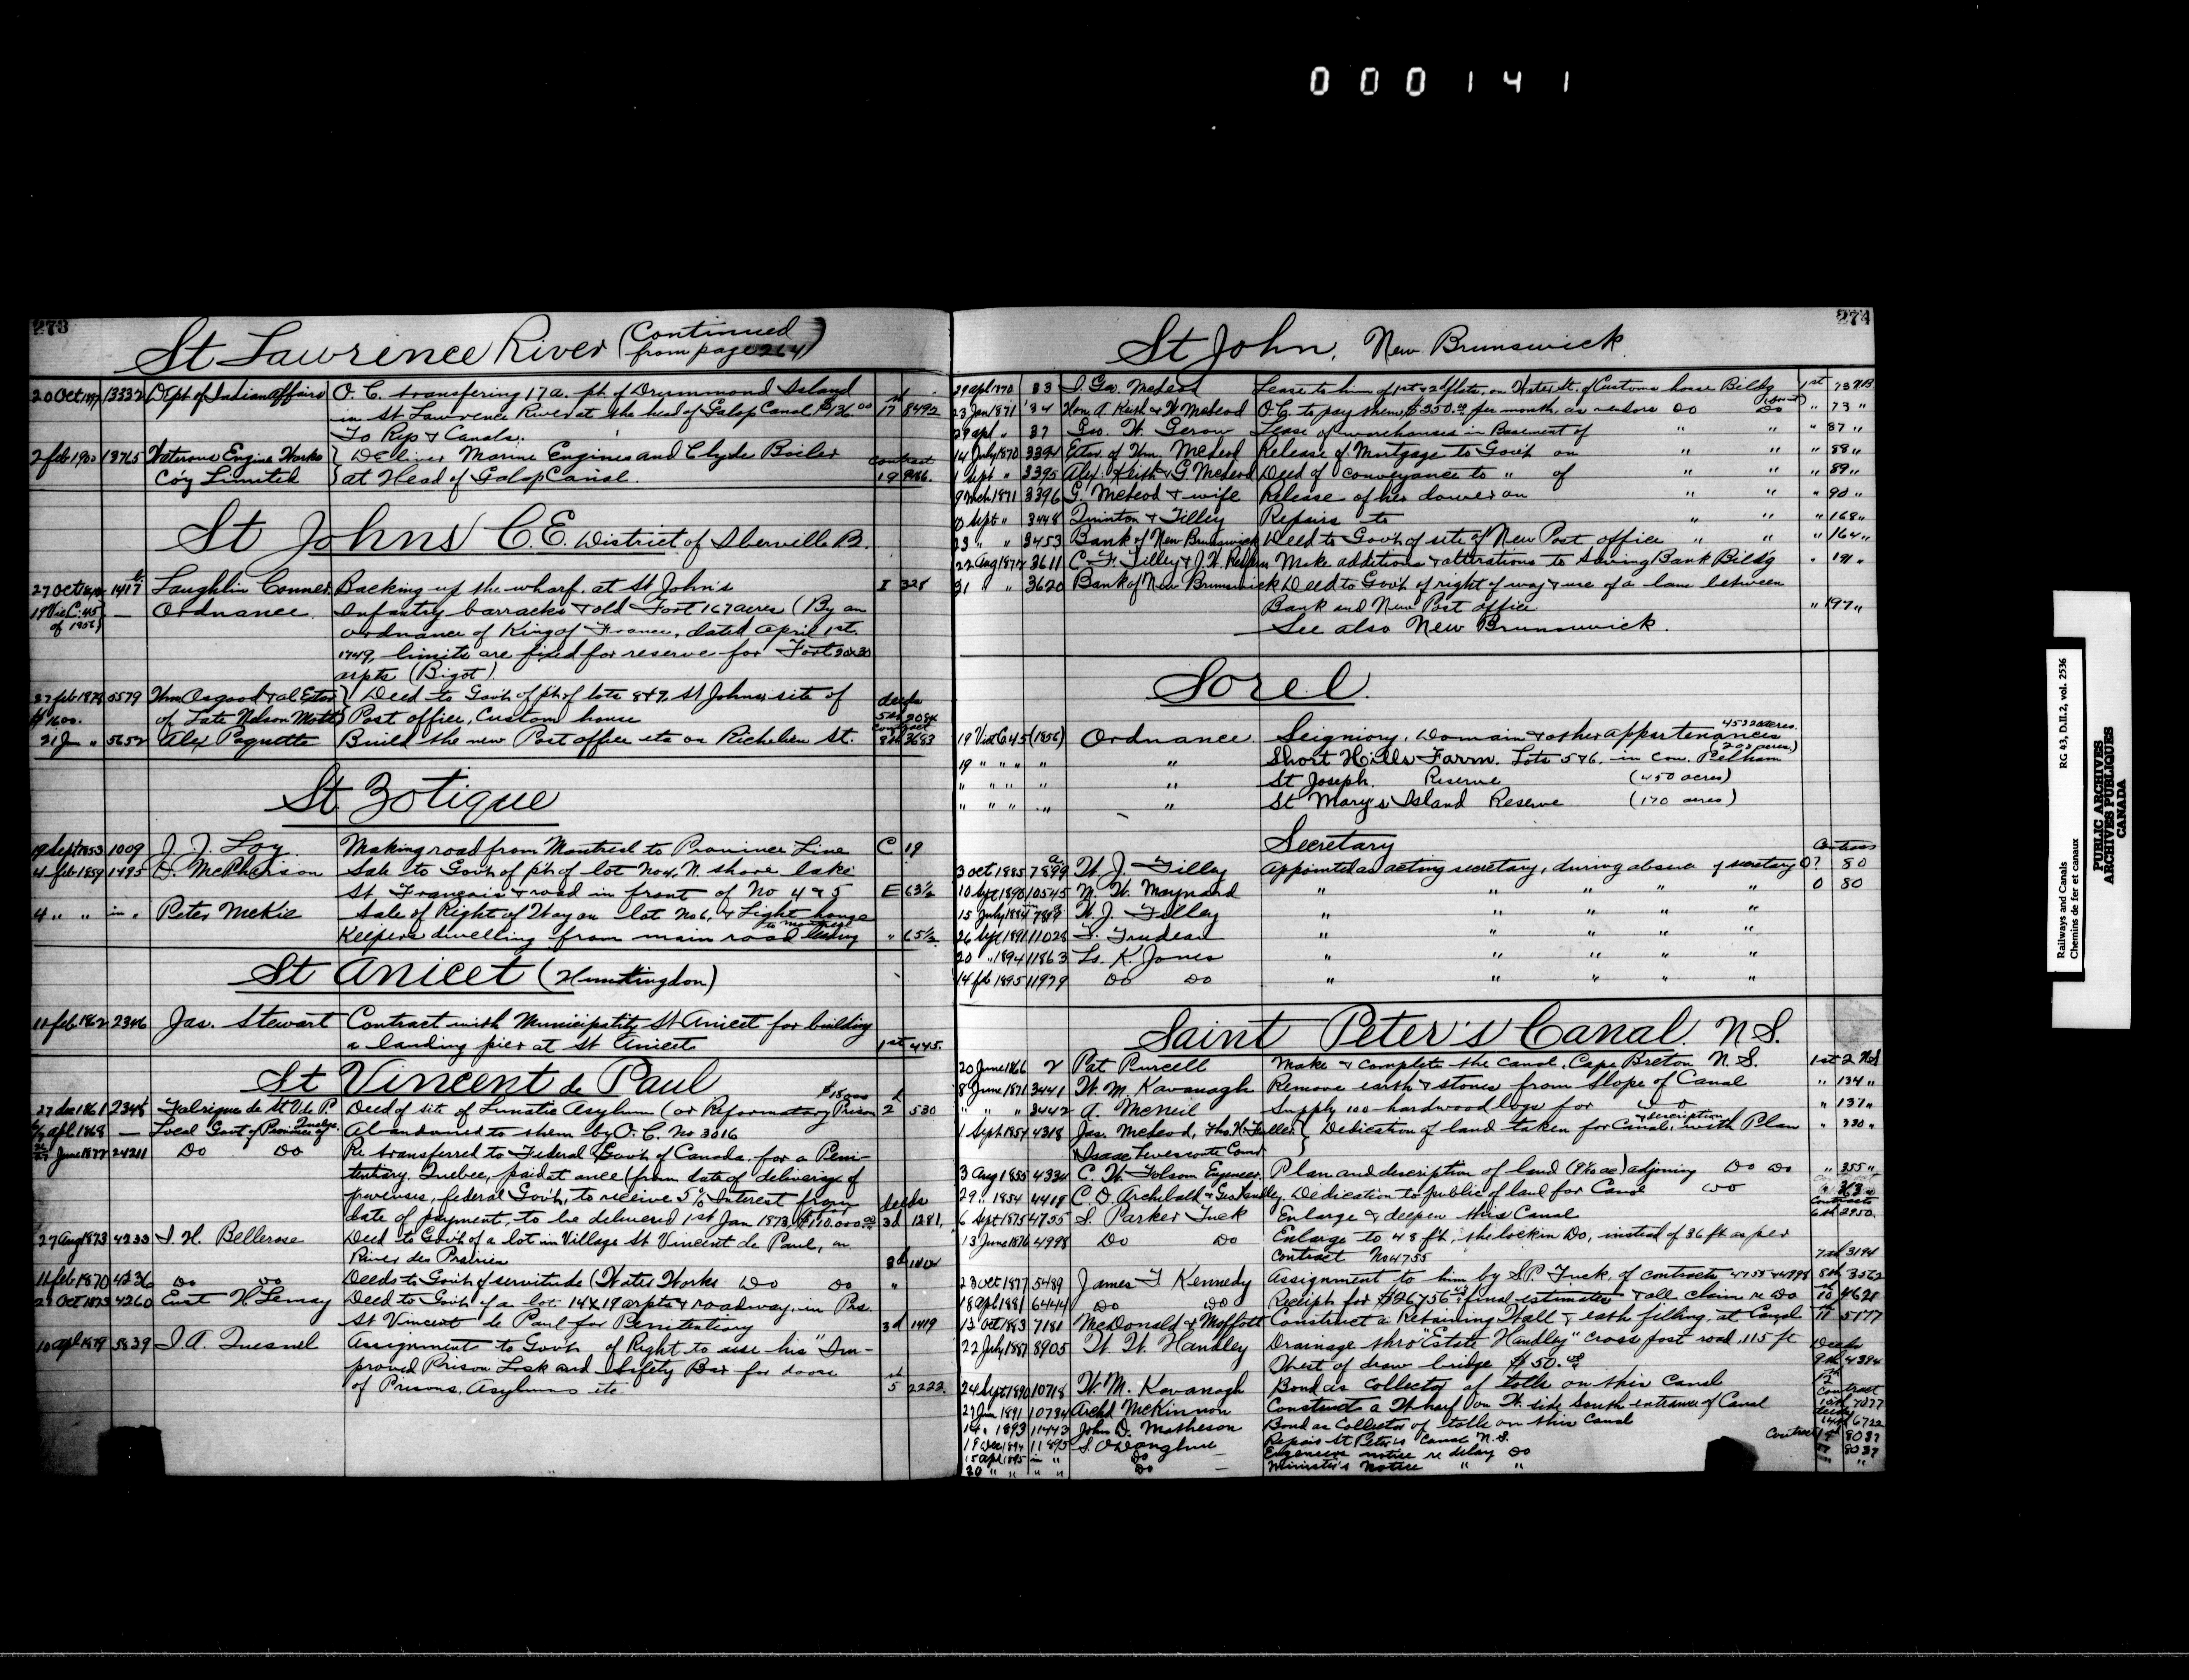 000141
273
St Lawrence River (Continued from page 264)
20 Oct 1897 13332 Dept of Indian Affairs O. C. transfering 17 a. pt. of Drummond Island
in St Lawrence River at the head of Galop Canal $136.00 17 8492
To Rys & Canals.
2 feb 1900 13765 Waterous Engine Works } Deliver Marine Engines and Clyde Boiler contract
Co'y Limited } at Head of Galop Canal. 19
St Johns C.E. District of Iberville P.
27 Oct 1417 Laughlin Conner Backing up the wharf. at St John's I 328
19 Vic C. 45 — Ordnance Infantry barracks & old Fort 167 acres (By an
of 1856) ordnance of King of France, dated April 1st.
1749, limits are fixed for reserve for Fort 30x30
arpts (Bigot)
27 feb 1879 5579 Wm Osgood & al Extor } Deed to Govt. of pt. of lots 8 & 9. St Johns site of deeds
$1600. of Late Nelson Mott } Post office, Custom house 5th 2084
21 Jun " 5652 Alex Paquette Build the new Post office etc on Richelieu St. Contract 8th 3683
St Zotique
19 Sept 1853 1009 J. J. Loy Making road from Montreal to Province Line C 19
4 feb 1859 1495 D. McPherson Sale to Govt. of pt. of lot No 4, N. shore lake
St Francois & road in front of No 4 & 5 E 63½
4 " " in " Peter McKie Sale of Right of Way on lot No 6, & Light house
Keepers dwelling from main road leading to Montreal " 65½
St Anicet (Huntingdon)
11 feb 1862 2346 Jas. Stewart Contract with Municipality St Anicet for building
a landing pier at St Anicet 1st 445.
St Vincent de Paul
$18000
27 dec 1861 2348 Fabrique de St V. de P. Deed of sit of Lunatic Asylum (or Reformatory Prison 2d 530
apl 1868 — Local Govt of Province of Quebec Abandoned to them by O. C. No 3016
June 1872 24211 Do Do Re transferred to Federal Govt. of Canada. for a Peni-
tentiary. Quebec, paid at once (from date of delivering of
premises, federal Govt. to receive 5% Interest from
date of payment, to be delivered 1st Jan 1873, $110.000.00 deeds 3d 1281.
27 Aug 1873 4233 J. H. Bellerose Deed to Govt. of a lot in Village St Vincent de Paul, on
River des Prairies 3d
11 feb 1870 4236 Do Do Deeds to Govt. of servitude (Water Works Do Do "
27 Oct 1873 4260 Eust H Lemay Deed to Govt. of a lot 14 x 19 arpts & roadway. in Par.
St Vincent de Paul for Penitentiary 3d 1419
10 apl 1879 5839 J. A. Quesnel Assignment to Govt. of Right to use his "Im-
proved Prison Lock and Safety Bar for doors
of Prisons, Asylums etc 5th 2222.
274
St John, New Brunswick
29 apl 1870 33 J Geo. McLeod Lease to him of 1st & 2d flats, on Water St. of Customs house Bildg 1st 73 NB
23 Jan 1871 34 Hon. A. Keith & W McLeod O.C. to pay them $350.00 per month, as vendors Do Do " 73 "
29 apl " 37 Geo. W. Gerow Lease of warehouses in Basement of " " " 87 "
14 July 1870 3394 Extor. of Wm. McLeod Release of Mortgage to Govt. on " " " 88 "
1 Sept " 3395 Alex. Keith & G. McLeod Deed of conveyance to " of " " " 89 "
9 Mch 1871 3396 G. McLeod & wife Release of her dower on " " " 90 "
Sept " 3448 Quinton & Tilley Repairs to " " " 168 "
23 " " 3453 Bank of New Brunswick Deed to Govt. of site of New Post office " " " 164 "
22 Aug 1872 3611 C. F. Tilley & J. W. Make additions & alterations to Saving Bank Bild'g " 191 "
31 " " 3620 Bank of New Brunswick Deed to Govt. of right of way & use of a lane between
Bank and New Post office " 197 "
See also New Brunswick.
Sorel.
19 Vict C. 45 (1856) Ordnance Seigniory, Domain & other appartenances 4522 acres.
19 " " " " " Short Hills Farm. Lots 5 & 6. in con. Pelham (200 acres)
" " " " " " St Joseph. Reserve (450 acres)
" " " " " " St Mary's Island Reserve (170 acres)
Secretary
3 oct 1885 7899 W. J. Tilley Appointed as acting secretary, during absence of secretary O? 80
10 Sept 1890 10545 N. W. Maynard " " " " " O 80
15 July 1884 W. J. Tilley " " " " "
26 Sept 1891 11028 T. Trudeau " " " " "
20 " 1894 11863 Ls. K. Jones " " " " "
14 feb 1895 11979 Do Do " " " " "
Saint Peter's Canal. N.S.
20 June 1866 2 Pat Purcell Make & complete the canal, Cape Breton N. S. 1st 2 NS
8 June 1871 3441 W. M. Kavanagh Remove earth & stones from slope of Canal " 134 "
" " " 3442 A. McNeil Supply 100 hardwood logs for Do " 137 "
1 Sept 1854 4318 Jas. McLeod, Thos. H. Fuller } Dedication of land taken for Canal, & description with Plan " 330 "
Isaac Levesconte Comr }
3 Aug 1855 4334 C. W. Folsom Engineer Plan and description of land adjoining Do Do " 355 "
29 " 1854 4419 C. D. Archibald & Geo Handley Dedication to public of land for Canal Do " 363 "
6 Sept 1875 4755 S. Parker Tuck Enlarge & deepen this Canal Contracts 6th 2950.
13 June 1876 4998 Do Do Enlarge to 48 ft, the lock in Do, instead of 36 ft as per
contract No 4755 7th 3194
23 oct 1877 5489 James F Kennedy Assignment to him by S. P. Tuck, of contracts 4755 & 4998 8th 3562
18 apl 1881 6444 Do Do Receipt for $26756 final estimates & all claim re Do 10 4621
13 oct 1883 7181 McDonald & Moffatt Construct a Retaining Wall & earth filling, at Canal 11 5177
22 July 1887 8905 W. W. Handley Drainage thro "Estate Handley" cross post road. 115 ft Deeds
West of draw bridge $50.00 9th 4394
24 Sept 1890 10718 W. M. Kavanagh Bond as Collector of tolls on this Canal 12
27 Jan 1891 10734 Archd McKinnon Construct a Wharf on W. side South entrance of Canal Contract 7077
14 " 1893 11443 John D. Matheson Bond as Collector of tolls on this Canal 14th 6722
19 Dec 1894 11895 S. O'Donoghue Repair St Peter's Canal N.S. Contract 8037
15 apl 1895 in " Do — notice re delay Do 8037
30 " " " " Do — Minister's Notice " " "
PUBLIC ARCHIVES
ARCHIVES PUBLIQUES
CANADA
Railways and Canals
Chemins de fer et canaux
RG 43, D.II.2, vol. 2536